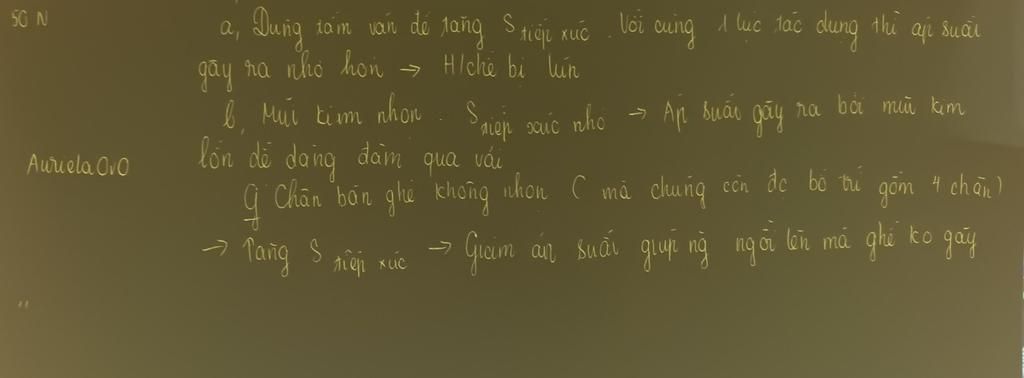 50 N
a, Dùng tấm ván để tăng S tiếp xúc. Với cùng 1 lực tác dụng thì áp suất
gây ra nhỏ hơn → H/chế bị lún
b, Mũi kim nhọn. S tiếp xúc nhỏ → Áp suất gây ra bởi mũi kim
lớn dễ dàng đâm qua vải
AurielaOvO
Chân bàn ghế không nhọn ( mà chúng còn đc bố trí gồm 4 chân)
→ Tăng S tiếp xúc → Giảm áp suất giúp ng ngồi lên mà ghế ko gãy